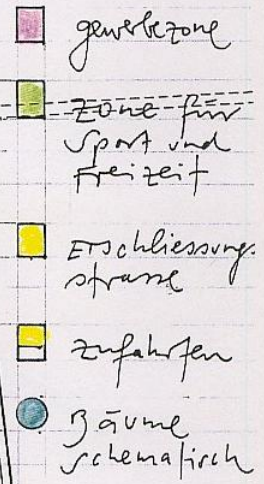 gewerbezone
Zone für
Sport und
Freizeit
Erschliessungs-
strasse
Zufahrten
Bäume
schematisch